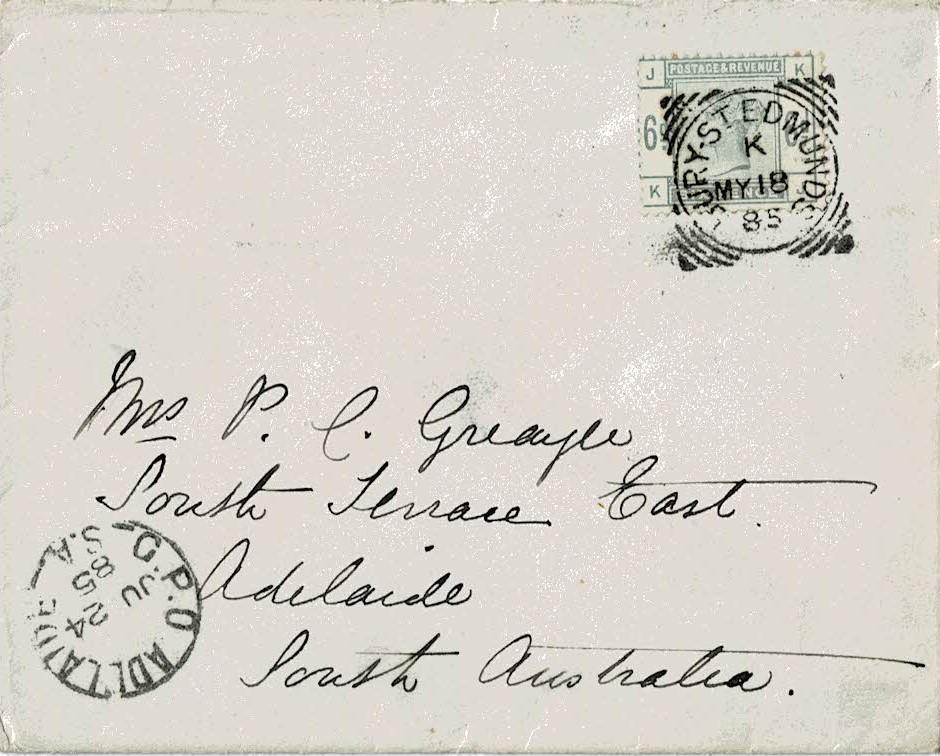 J POSTAGE & REVENUE K
6
K J
BURY·ST EDMUNDS
K
MY 18
85
Mrs P. C. Greayer
South Terrace East.
Adelaide
South Australia.
G.P.O ADELAIDE
S.A
JU
24
85